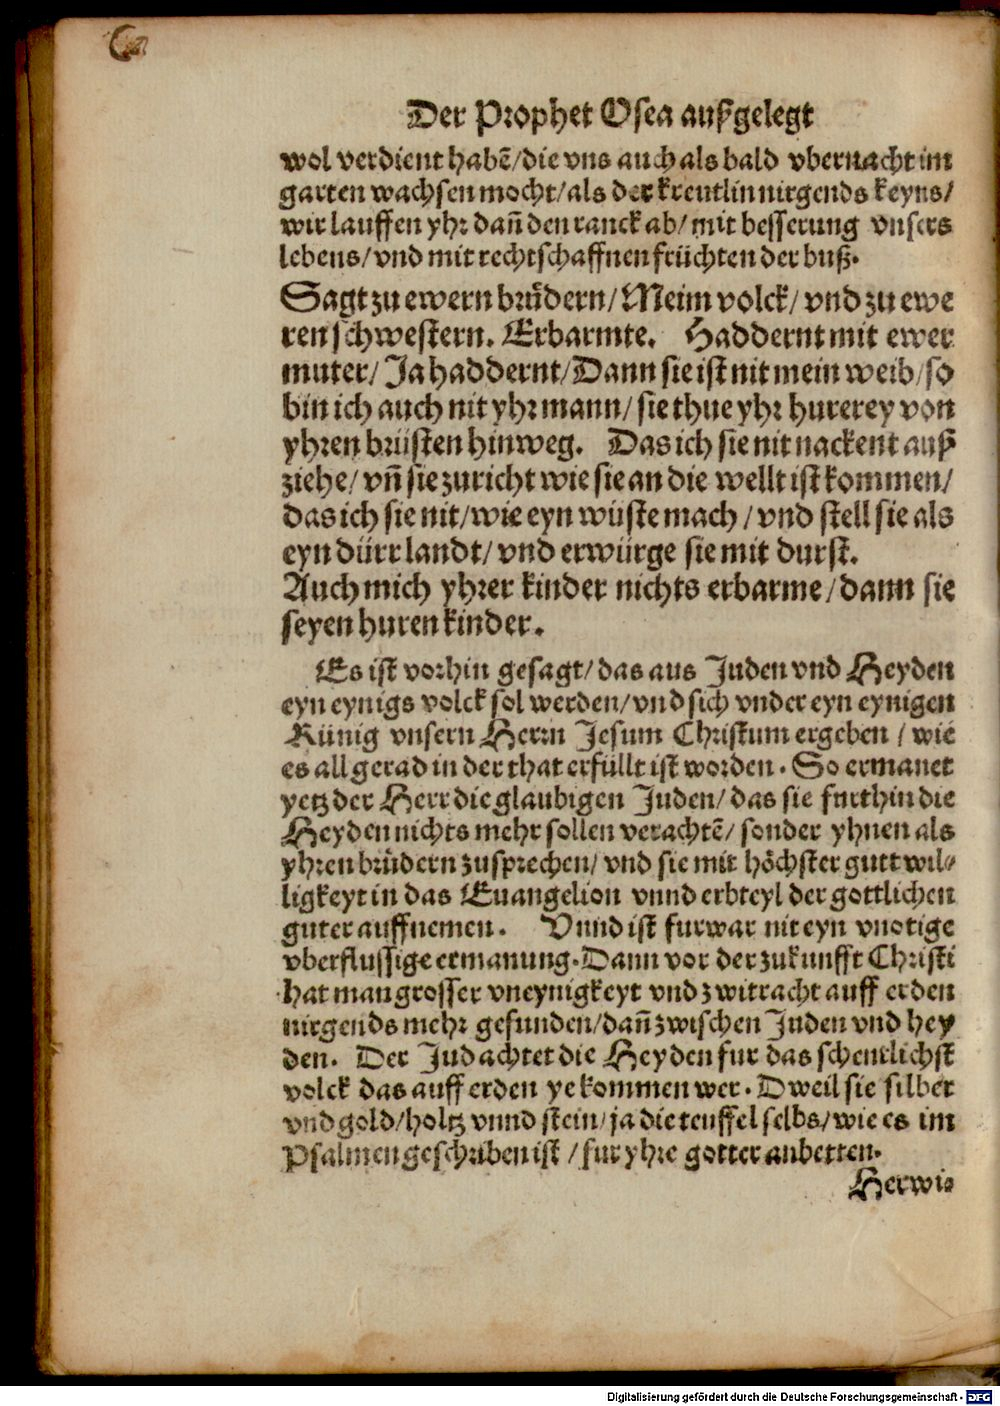 Der Prophet Osea außgelegt
wol verdient habẽ/die vns auch als bald vbernacht im
garten wachsen mocht/als der kreutlin nirgends keyns/
wir lauffen yhr dañ den ranck ab/mit besserung vnsers
lebens/vnd mit rechtschaffnen früchten der buß.
Sagt zu ewern brůdern/Meim volck/vnd zu ewe
ren schwestern. Erbarmte. Haddernt mit ewer
muter/Ja haddernt/Dann sie ist nit mein weib/so
bin ich auch nit yhr mann/sie thue yhr hurerey von
yhren brüsten hinweg. Das ich sie nit nackent auß
ziehe/vñ sie zuricht wie sie an die wellt ist kommen/
das ich sie nit/wie eyn wüste mach/vnd stell sie als
eyn dürr landt/vnd erwürge sie mit durst.
Auch mich yhrer kinder nichts erbarme/dann sie
seyen huren kinder.
Es ist vorhin gesagt/das aus Juden vnd Heyden
eyn eynigs volck sol werden/vnd sich vnder eyn eynigen
Künig vnsern Herrn Jesum Christum ergeben/wie
es all gerad in der that erfüllt ist worden. So ermanet
yetz der Herr die glaubigen Juden/das sie furthin die
Heyden nichts mehr sollen verachtẽ/sonder yhnen als
yhren brůdern zusprechen/vnd sie mit höchster gutt wil⸗
ligkeyt in das Euangelion vnnd erbteyl der gottlichen
guter auffnemen. Vnnd ist furwar nit eyn vnotige
vberflussige ermanung. Dann vor der zukunfft Christi
hat man grosser vneynigkeyt vnd zwitracht auff erden
nirgends mehr gefunden/dañ zwischen Juden vnd hey
den. Der Jud achtet die Heyden fur das schentlichst
volck das auff erden ye kommen wer. Dweil sie silber
vnd gold/holtz vnnd stein/ja die teuffel selbs/wie es im
Psalmen geschriben ist/fur yhre gotter anbetten.
Herwi⸗
Digitalisierung gefördert durch die Deutsche Forschungsgemeinschaft - DFG